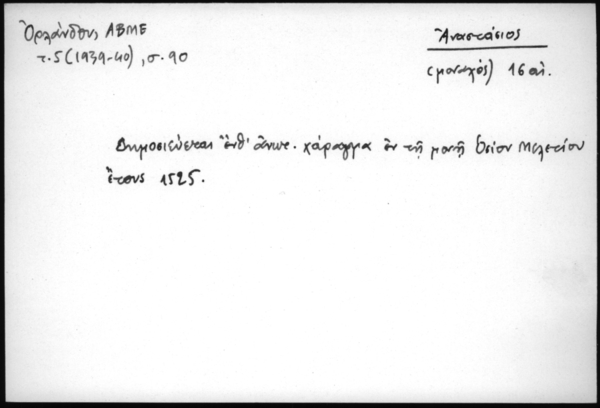 Ὀρλάνδος, ΑΒΜΕ
τ. 5 (1939-40), σ. 90
Ἀναστάσιος
(μοναχός) 16 αἰ.
Δημοσιεύεται ἐνθ' ἀνωτ. χάραγμα ἐν τῇ μονῇ Ὁσίου Μελετίου
ἔτους 1525.